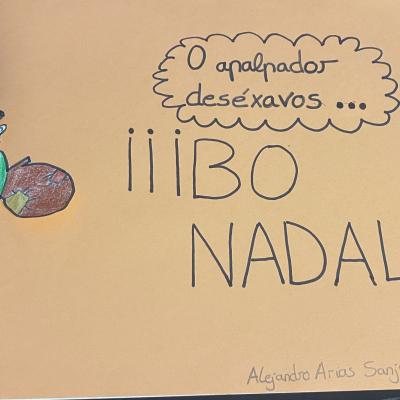 O apalpador
deséxavos ...
¡¡¡BO
NADAL
Alejandro Arias